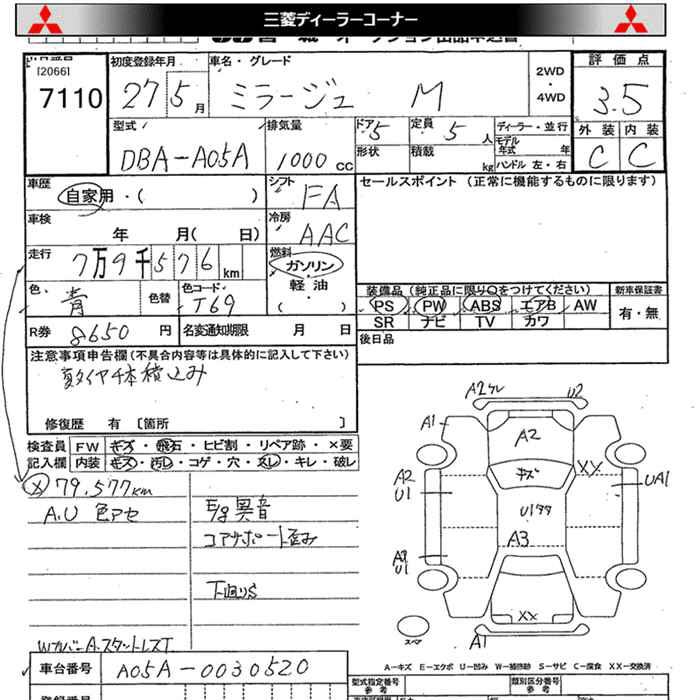 三菱ディーラーコーナー
[2066]
7110
初度登録年月
27 5 月
車名・グレード
ミラージュ M
2WD
・
4WD
評価点
3.5
外装 内装
C C
型式
DBA-A05A
排気量
1000 cc
ドア 5
定員 5 人
形状
積載 kg
ディーラー・並行
モデル年式 年
ハンドル 左・右
車歴
自家用・( )
シフト
FA
セールスポイント (正常に機能するものに限ります)
車検
年 月( 日)
冷房
AAC
走行
7万9千576km
燃料
ガソリン・軽油・( )
色
青
色替
色コード
T69
装備品(純正品に限り○をつけてください)
PS PW ABS エアB AW
SR ナビ TV カワ
新車保証書
有・無
R券 8650 円
名変通知期限 月 日
後日品
注意事項申告欄(不具合内容等は具体的に記入して下さい)
夏タイヤ4本積込み
修復歴 有 [箇所 ]
検査員記入欄
FW キズ・飛石・ヒビ割・リペア跡・×要
内装 キズ・汚レ・コゲ・穴・スレ・キレ・破レ
79,577km
A.U 色アセ
E/g異音
コアサポート歪み
下回りS
WカバーA.スタットレスT
車台番号 A05A-0030520
A2 U2
A1
A2
キズ
XX
A2
U1
UA1
U1
A3
U1
XX
A1
スペア
A-キズ E-エクボ U-凹み W-補修跡 S-サビ C-腐食 XX-交換済
型式指定番号
参考
類別区分番号
参考